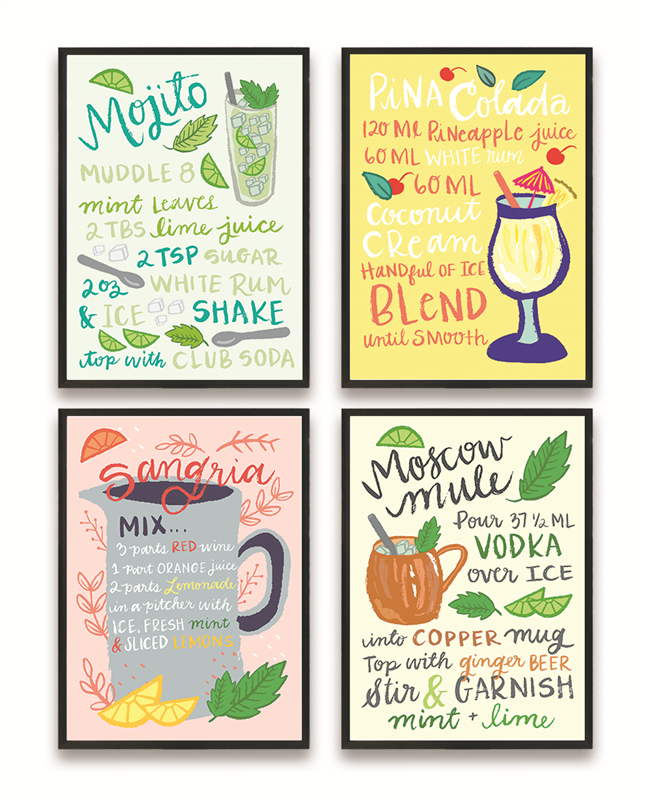 Mojito
MUDDLE 8
mint leaves
2 TBS lime juice
2 TSP SUGAR
2oz WHITE RUM
& ICE SHAKE
top with CLUB SODA
PiNA Colada
120 Ml PiNeapple juice
60 ML WHITE rum
60 ML
Coconut
CREAM
HANDful OF ICE
BLEND
until SMOOTH
Sangria
MIX...
3 parts RED wine
1 Part ORANGE juice
2 parts Lemonade
in a pitcher with
ICE, FRESH mint
& SLICED LEMONS
Moscow
mule
Pour 37 1/2 ML
VODKA
over ICE
into COPPER mug
Top with ginger BEER
Stir & GARNISH
mint + lime